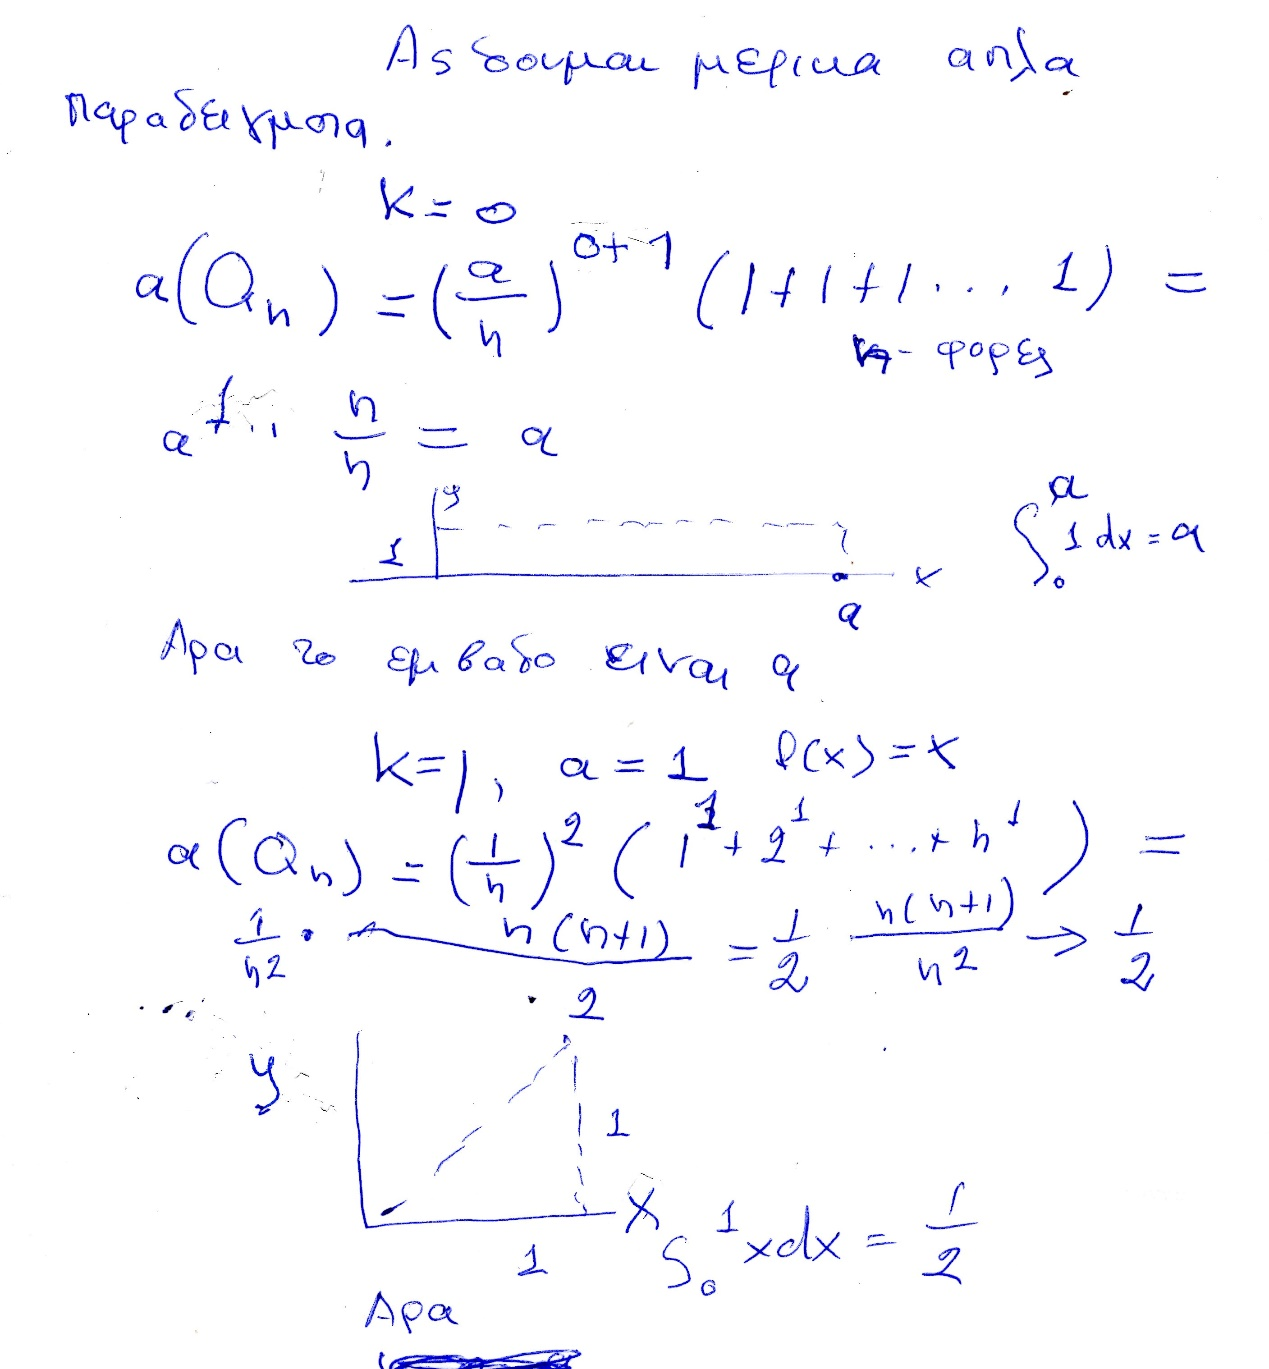 Ας δουμαι μερικα απλα
παραδειγματα.
k = 0
a(Qn) = (a/n)^{0+1} (1+1+1... 1) =
n - φορες
a^1 · n/n = a
y
1
x
a
∫_0^a 1 dx = a
Αρα το εμβαδο ειναι a
k=1, a = 1 f(x) = x
a(Qn) = (1/n)^2 (1^1 + 2^1 + ... + n^1) =
1/n2 · n(n+1)/2 = 1/2 n(n+1)/n^2 → 1/2
y
1
x
1
∫_0^1 xdx = 1/2
Αρα